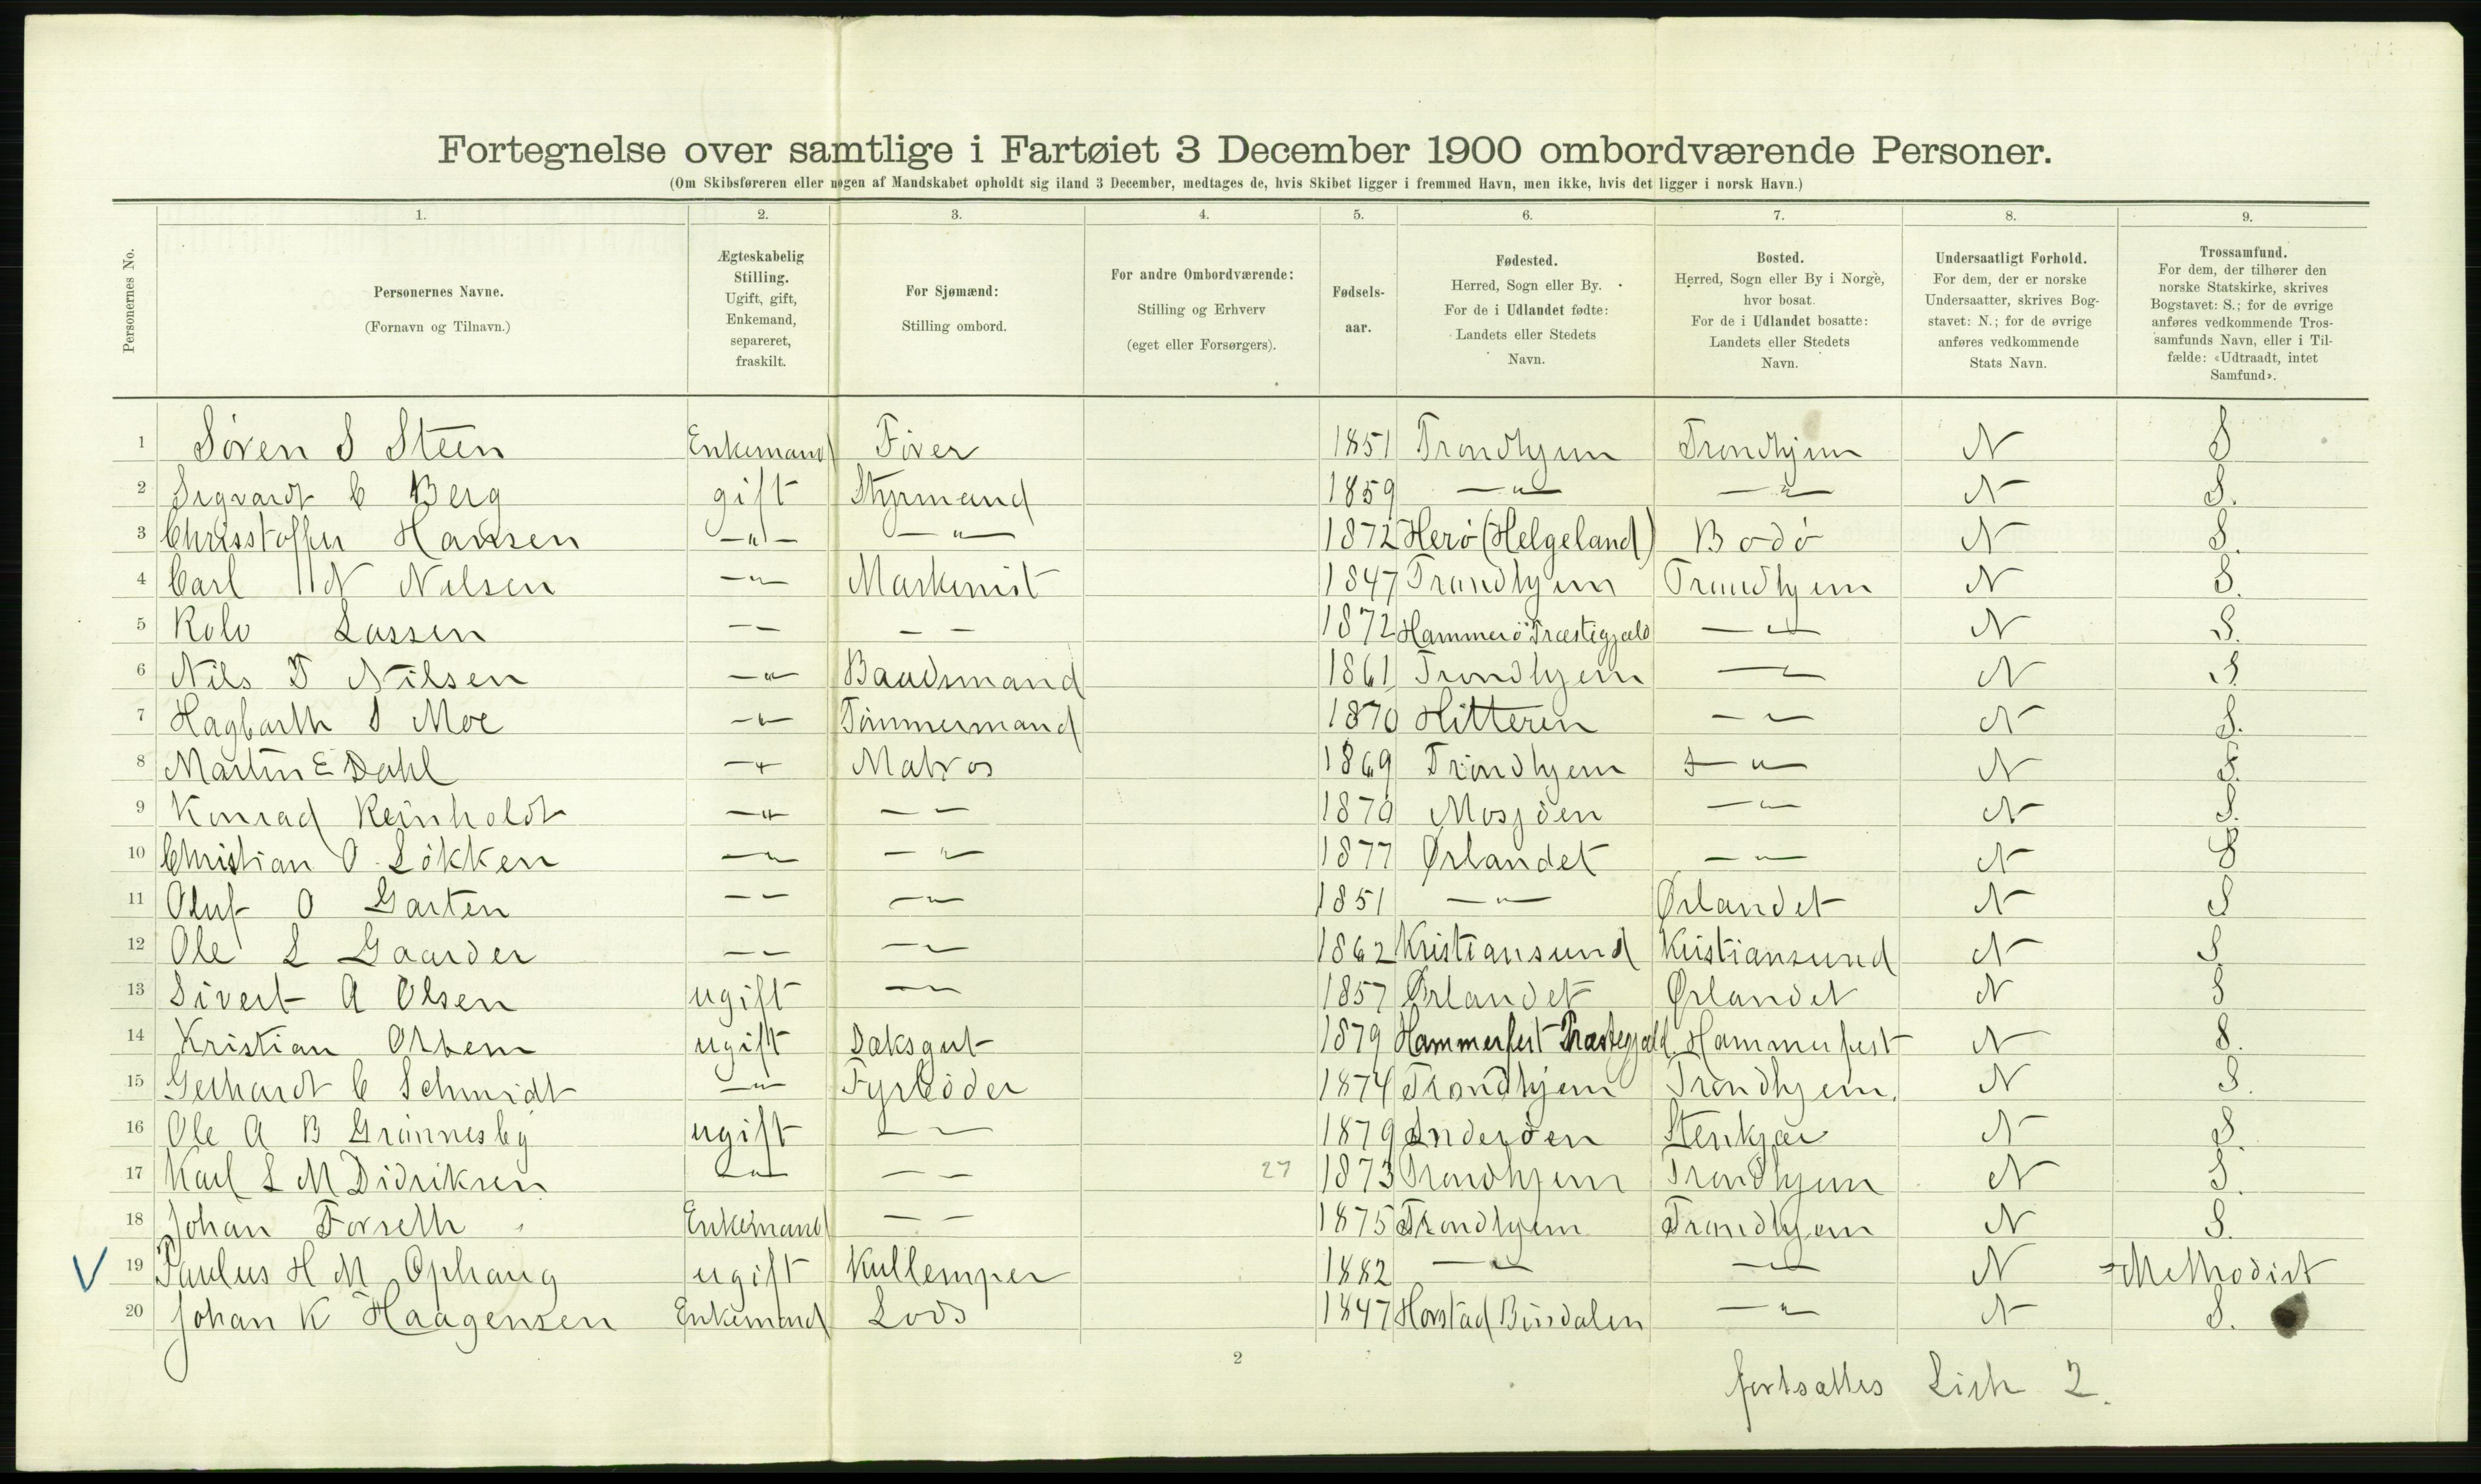 Fortegnelse over samtlige i Fartøiet 3 December 1900 ombordværende Personer.
(Om Skibsføreren eller nogen af Mandskabet opholdt sig iland 3 December, medtages de, hvis Skibet ligger i fremmed Havn, men ikke, hvis det ligger i norsk Havn.)
Personernes No.
1. 2. 3. 4. 5. 6. 7. 8. 9.
Personernes Navne. (Fornavn og Tilnavn.)
Ægteskabelig Stilling. Ugift, gift, Enkemand, separeret, fraskilt.
For Sjømænd: Stilling ombord.
For andre Ombordværende: Stilling og Erhverv (eget eller Forsørgers).
Fødsels-aar.
Fødested. Herred, Sogn eller By. For de i Udlandet fødte: Landets eller Stedets Navn.
Bosted. Herred, Sogn eller By i Norge, hvor bosat. For de i Udlandet bosatte: Landets eller Stedets Navn.
Undersaatligt Forhold. For dem, der er norske Undersaatter, skrives Bog-stavet: N.; for de øvrige anføres vedkommende Stats Navn.
Trossamfund. For dem, der tilhører den norske Statskirke, skrives Bogstavet: S.; for de øvrige anføres vedkommende Tros-samfunds Navn, eller i Til-fælde: «Udtraadt, intet Samfund».
1 Sören S Steen Enkemand Förer 1851 Trondhjem Trondhjem N S
2 Sigvardt C Berg gift Styrmand 1859 —"— —"— N S.
3 Chrisstoffer Hansen —"— —"— 1872 Herö (Helgeland) Bodö N S.
4 Carl N Nilsen —"— Maskinist 1847 Trondhjem Trondhjem N S.
5 Rolv Lassen —— —— 1872 Hammerö Præstigjæld —"— N S.
6 Nils T Nilsen —"— Baadsmand 1861 Trondhjem —— N S.
7 Hagbarth S Moe —"— Tömmermand 1870 Hitteren —— N S.
8 Martin E Dahl —"— Matros 1869 Trondhjem —"— N S.
9 Konrad Reinholdt —"— —— 1870 Mosjöen —"— N S.
10 Christian O Lökken —"— —"— 1877 Ørlandet —— N S
11 Oluf O Garten —— —"— 1851 —"— Ørlandet N S
12 Ole L Gaarder —— —— 1862 Kristiansund Kristiansund N S
13 Sivert A Olsen ugift —— 1857 Ørlandet Ørlandet N S
14 Kristian ugift Daksgut 1879 Hammerfest Præstegjæld Hammerfest N S.
15 Gerhardt C Schmidt —"— Fyrböder 1874 Trondhjem Trondhjem. N S.
16 Ole A B Grönnesby ugift —— 1879 Inderöen Stenkjær N S.
17 Karl L M Didriksen —"— —— 27 1873 Trondhjem Trondhjem N S.
18 Johan Forseth Enkemand —— 1875 Trondhjem Trondhjem N S.
V 19 Paulus H M Ophaug ugift Kullemper 1882 —"— —"— N Methodist
20 Johan K Haagensen Enkemand Lods 1847 Horstad Bindalen —"— N S.
2
fortsættes Liste 2.